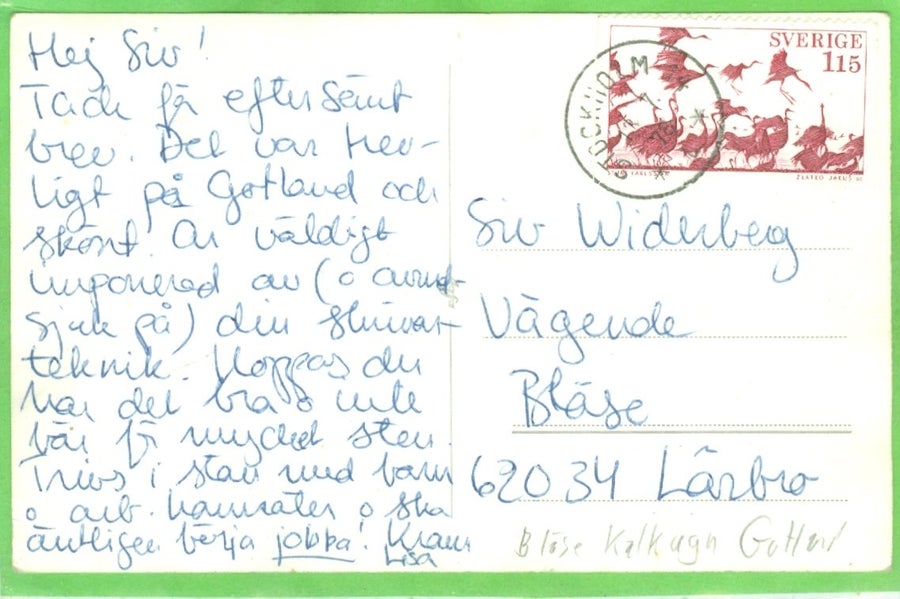 Hej Siv!
Tack få eftersänt
brev. Det var Her-
ligt på Gotland och
skönt. Är väldigt
imponerad av (o avund-
sjuk på) din skrivar-
teknik. Hoppas du
har det bra o inte
bär få mycket sten.
Trivs i stan med barn
o arb. kamrater o ska
äntligen börja jobba! Kram
Lisa
SVERIGE
115
STOCKHOLM
ZLATKO JAKUS SC
Siv Widerberg
Vägende
Bläse
62034 Lärbro
Bläse Kalkugn Gotland